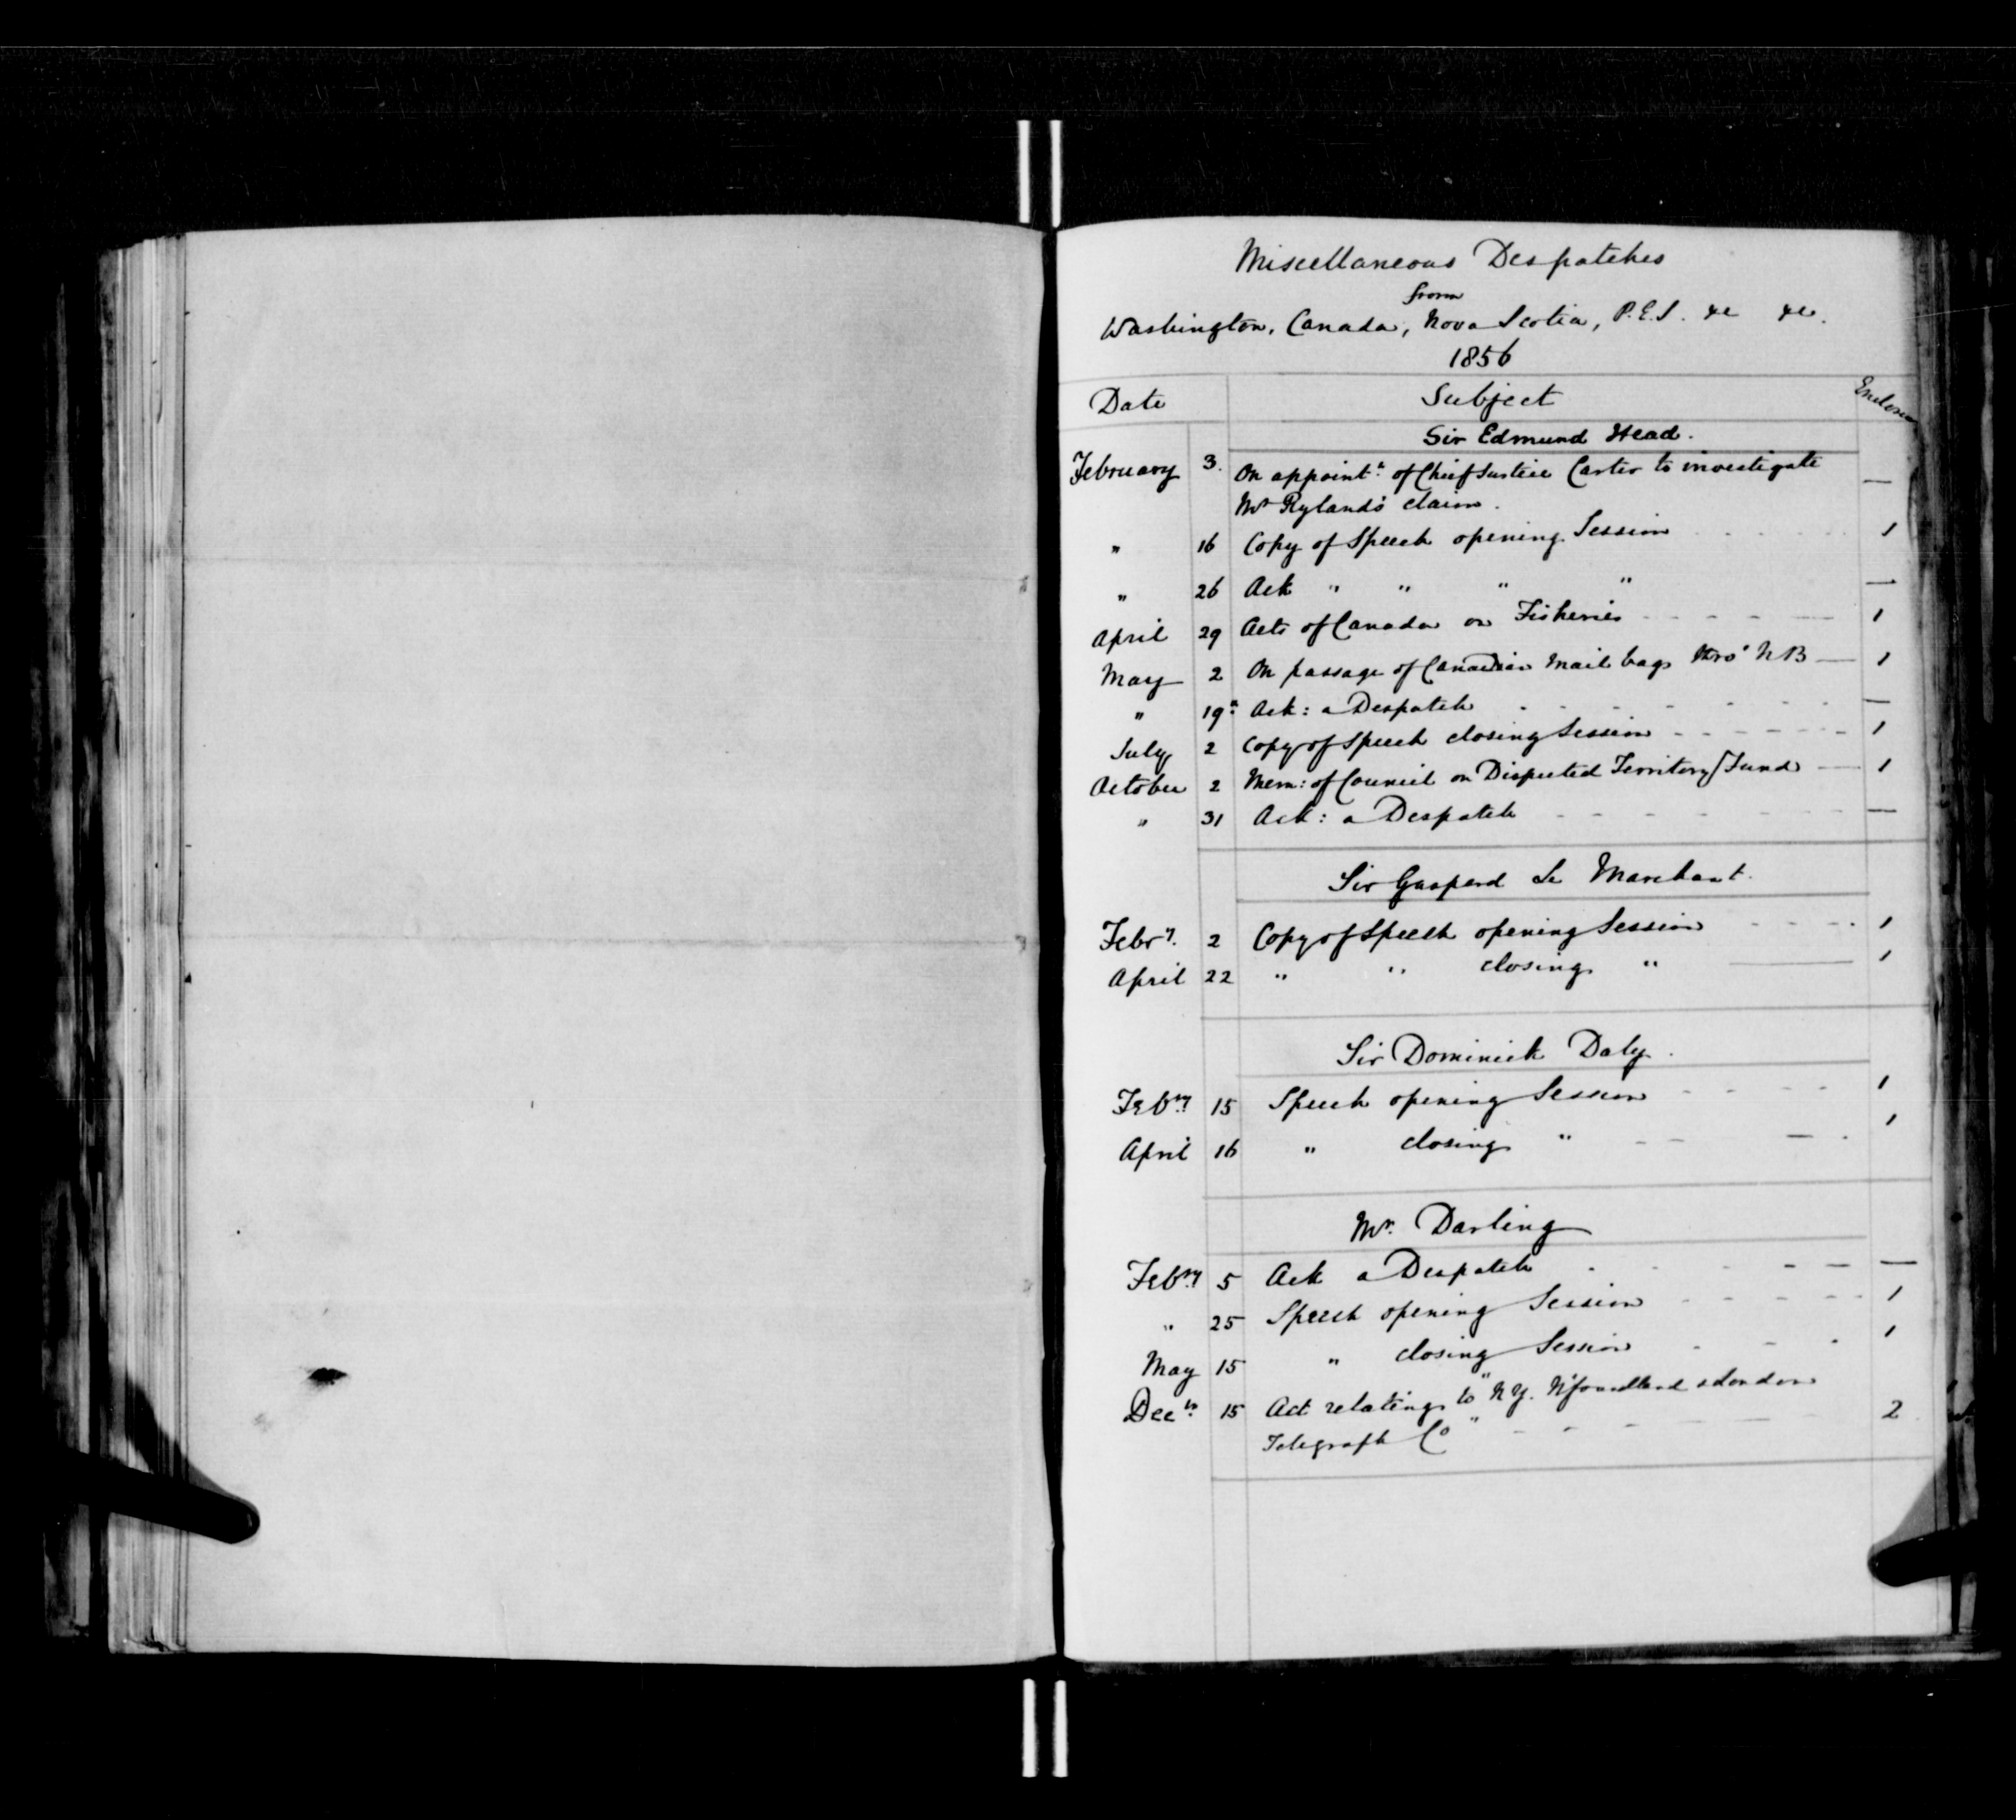 Miscellaneous Despatches
from
Washington, Canada, Nova Scotia, P.E.I. &c &c.
1856
Date Subject
Sir Edmund Head.
February 3. On appointt. of Chief Justice Carter to investigate —
Mr Ryland's claim.
" 16 Copy of Speech opening Session 1
" 26 Ack " " " " —
April 29 Acts of Canada on Fisheries 1
May 2 On passage of Canadian Mail bags thro' N B — 1
" 19th Ack: a Despatch —
July 2 Copy of Speech closing Session 1
October 2 Mem: of Council on Disputed Territory Fund — 1
" 31 Ack: a Despatch —
Sir Gasperd Le Marchant.
Febry. 2 Copy of Speech opening Session 1
April 22 " " closing " — 1
Sir Dominick Daly.
Febry 15 Speech opening Session 1
April 16 " closing " 1
Mr. Darling
Febry 5 Ack a Despatch —
" 25 Speech opening Session 1
May 15 " closing Session 1
Decr. 15 Act relating to "N Y. N'foundland & London 2
Telegraph Co"